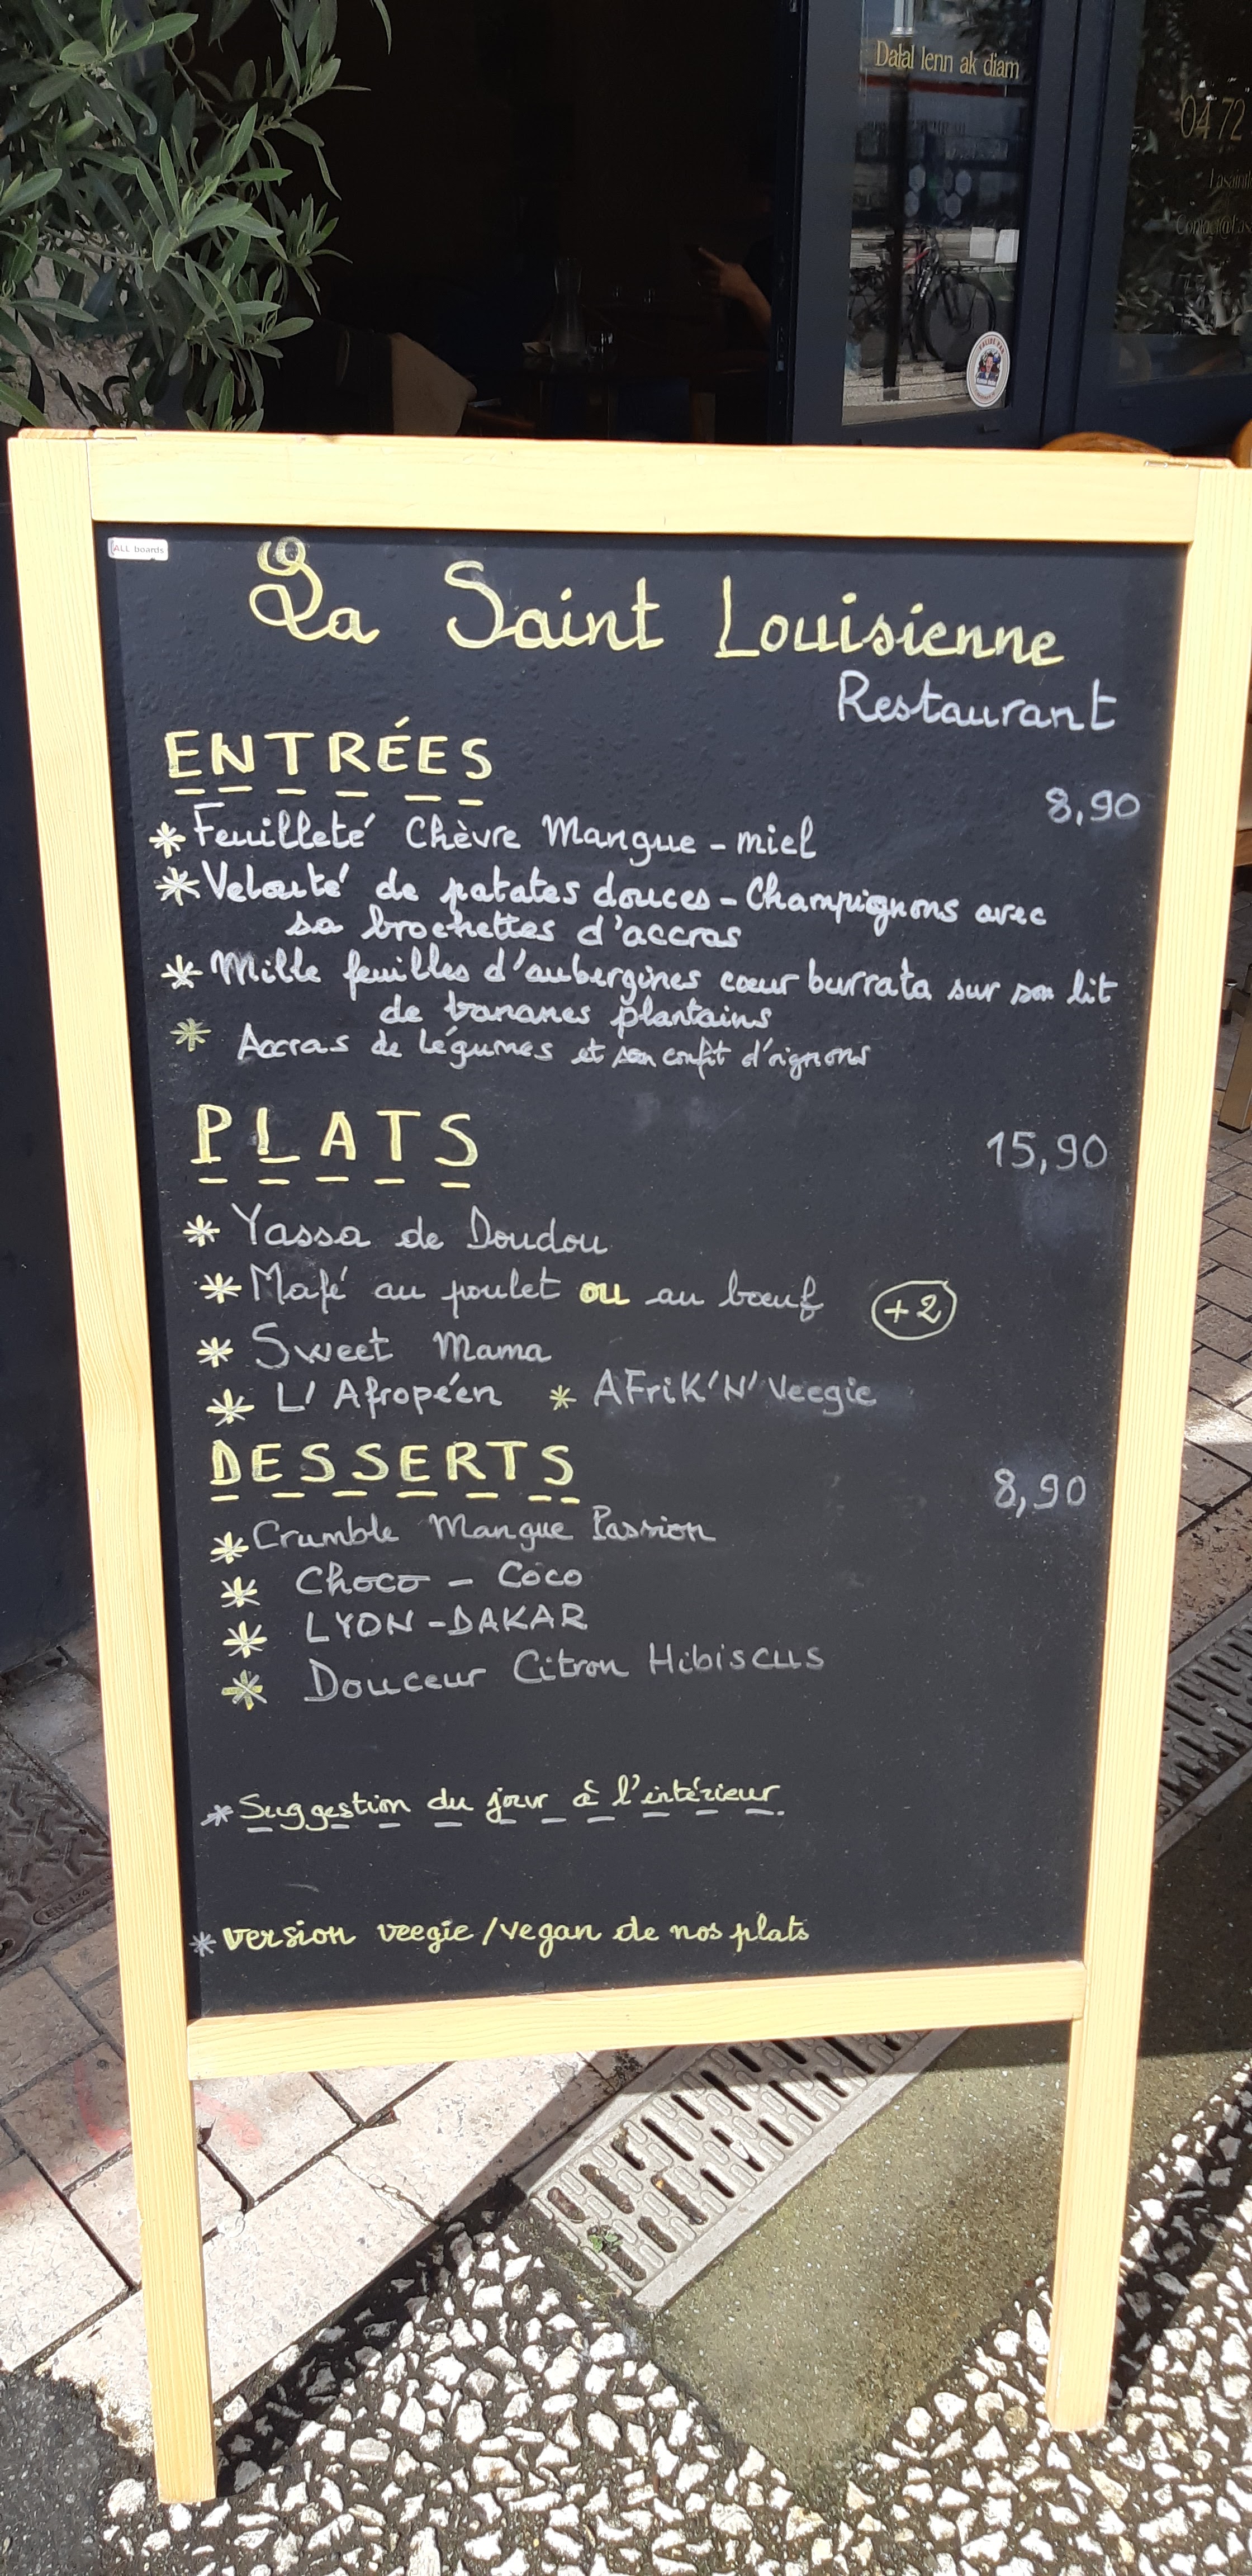 Dalal lenn ak diam
04 72
ALL boards
La Saint Louisienne
Restaurant
ENTRÉES
8,90
* Feuilleté Chèvre Mangue - miel
* Velouté de patates douces - Champignons avec
sa brochettes d'accras
* Mille feuilles d'aubergines cœur burrata sur son lit
de bananes plantains
* Accras de légumes et son confit d'oignons
PLATS
15,90
* Yassa de Doudou
* Mafé au poulet ou au bœuf +2
* Sweet Mama
* L'Afropéen * AFriK'N'Veegie
DESSERTS
8,90
* Crumble Mangue Passion
* Choco - Coco
* LYON - DAKAR
* Douceur Citron Hibiscus
* Suggestion du jour à l'intérieur.
* version veegie/vegan de nos plats
EN 124